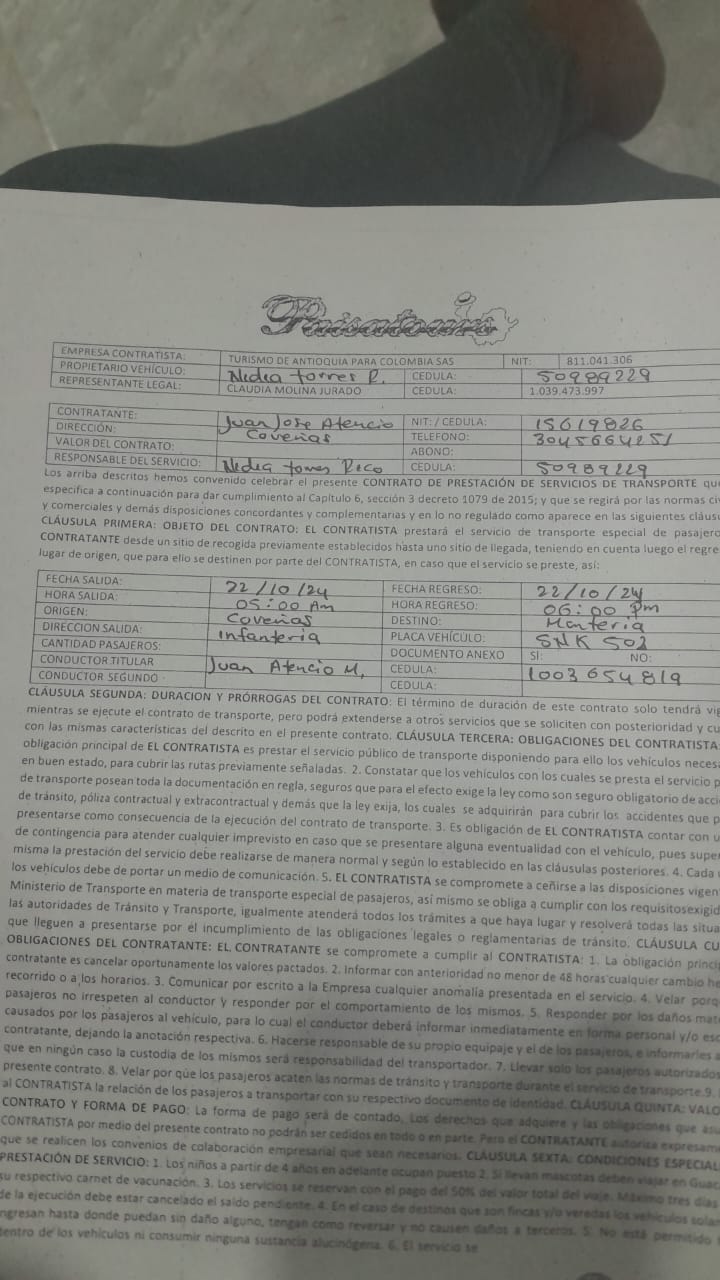 Paisatours
EMPRESA CONTRATISTA: TURISMO DE ANTIOQUIA PARA COLOMBIA SAS NIT: 811.041.306
PROPIETARIO VEHÍCULO: Nedea Torres R. CEDULA: 50989229
REPRESENTANTE LEGAL: CLAUDIA MOLINA JURADO CEDULA: 1.039.473.997
CONTRATANTE: Juan Jose Atencio NIT: / CEDULA: 15619826
DIRECCIÓN: Coveñas TELEFONO: 3045664251
VALOR DEL CONTRATO: ABONO:
RESPONSABLE DEL SERVICIO: Nedea torres Rico CEDULA: 50989229
Los arriba descritos hemos convenido celebrar el presente CONTRATO DE PRESTACIÓN DE SERVICIOS DE TRANSPORTE que
especifica a continuación para dar cumplimiento al Capítulo 6, sección 3 decreto 1079 de 2015; y que se regirá por las normas
y comerciales y demás disposiciones concordantes y complementarias y en lo no regulado como aparece en las siguientes
CLÁUSULA PRIMERA: OBJETO DEL CONTRATO: EL CONTRATISTA prestará el servicio de transporte especial de
CONTRATANTE desde un sitio de recogida previamente establecidos hasta uno sitio de llegada, teniendo en cuenta luego el
lugar de origen, que para ello se destinen por parte del CONTRATISTA, en caso que el servicio se preste, así:
FECHA SALIDA: 22/10/24 FECHA REGRESO: 22/10/24
HORA SALIDA: 05:00 Am HORA REGRESO: 06:00 Pm
ORIGEN: Coveñas DESTINO: Monteria
DIRECCION SALIDA: Infanteria PLACA VEHÍCULO: SNK 502
CANTIDAD PASAJEROS: DOCUMENTO ANEXO SI: NO:
CONDUCTOR TITULAR Juan Atencio M. CEDULA: 1003654819
CONDUCTOR SEGUNDO CEDULA:
CLÁUSULA SEGUNDA: DURACION Y PRÓRROGAS DEL CONTRATO: El término de duración de este contrato solo tendrá
mientras se ejecute el contrato de transporte, pero podrá extenderse a otros servicios que se soliciten con posterioridad y
con las mismas características del descrito en el presente contrato. CLÁUSULA TERCERA: OBLIGACIONES DEL CONTRATISTA:
obligación principal de EL CONTRATISTA es prestar el servicio público de transporte disponiendo para ello los vehículos
en buen estado, para cubrir las rutas previamente señaladas. 2. Constatar que los vehículos con los cuales se presta el servicio
de transporte posean toda la documentación en regla, seguros que para el efecto exige la ley como son seguro obligatorio de
de tránsito, póliza contractual y extracontractual y demás que la ley exija, los cuales se adquirirán para cubrir los accidentes que
presentarse como consecuencia de la ejecución del contrato de transporte. 3. Es obligación de EL CONTRATISTA contar con
de contingencia para atender cualquier imprevisto en caso que se presentare alguna eventualidad con el vehículo, pues
misma la prestación del servicio debe realizarse de manera normal y según lo establecido en las cláusulas posteriores. 4. Cada
los vehículos debe de portar un medio de comunicación. 5. EL CONTRATISTA se compromete a ceñirse a las disposiciones
Ministerio de Transporte en materia de transporte especial de pasajeros, así mismo se obliga a cumplir con los
las autoridades de Tránsito y Transporte, igualmente atenderá todos los trámites a que haya lugar y resolverá todas las
que lleguen a presentarse por el incumplimiento de las obligaciones legales o reglamentarias de tránsito. CLÁUSULA
OBLIGACIONES DEL CONTRATANTE: EL CONTRATANTE se compromete a cumplir al CONTRATISTA: 1. La obligación
contratante es cancelar oportunamente los valores pactados. 2. Informar con anterioridad no menor de 48 horas cualquier cambio
recorrido o a los horarios. 3. Comunicar por escrito a la Empresa cualquier anomalía presentada en el servicio. 4. Velar
pasajeros no irrespeten al conductor y responder por el comportamiento de los mismos. 5. Responder por los daños
causados por los pasajeros al vehículo, para lo cual el conductor deberá informar inmediatamente en forma personal y/o
contratante, dejando la anotación respectiva. 6. Hacerse responsable de su propio equipaje y el de los pasajeros, e informarles
que en ningún caso la custodia de los mismos será responsabilidad del transportador. 7. Llevar solo los pasajeros autorizados
presente contrato. 8. Velar por que los pasajeros acaten las normas de tránsito y transporte durante el servicio de transporte.9.
al CONTRATISTA la relación de los pasajeros a transportar con su respectivo documento de identidad. CLÁUSULA QUINTA:
CONTRATO Y FORMA DE PAGO: La forma de pago será de contado, Los derechos que adquiere y las obligaciones que
CONTRATISTA por medio del presente contrato no podrán ser cedidos en todo o en parte. Pero el CONTRATANTE autoriza
que se realicen los convenios de colaboración empresarial que sean necesarios. CLÁUSULA SEXTA: CONDICIONES
PRESTACIÓN DE SERVICIO: 1. Los niños a partir de 4 años en adelante ocupan puesto 2. Si llevan mascotas deben viajar en
su respectivo carnet de vacunación. 3. Los servicios se reservan con el pago del 50% del valor total del viaje. Máximo tres días
de la ejecución debe estar cancelado el saldo pendiente. 4. En el caso de destinos que son fincas y/o veredas los vehículos
ingresan hasta donde puedan sin daño alguno, tengan como reversar y no causen daños a terceros. 5. No está permitido
dentro de los vehículos ni consumir ninguna sustancia alucinógena. 6. El servicio se